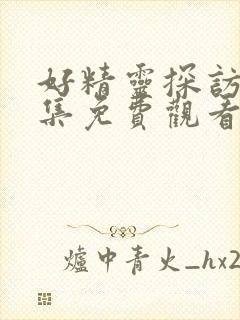 好精靈探訪
集免費觀看
爐中青火_hx2